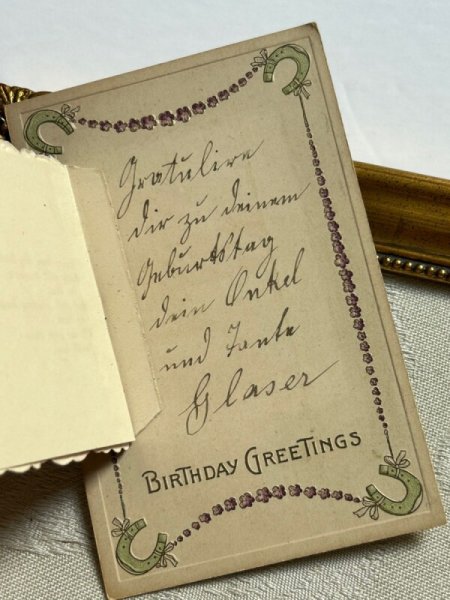 Gratulire
dir zu deinem
Geburtstag
dein Onkel
und Tante
Glaser
BIRTHDAY GREETINGS